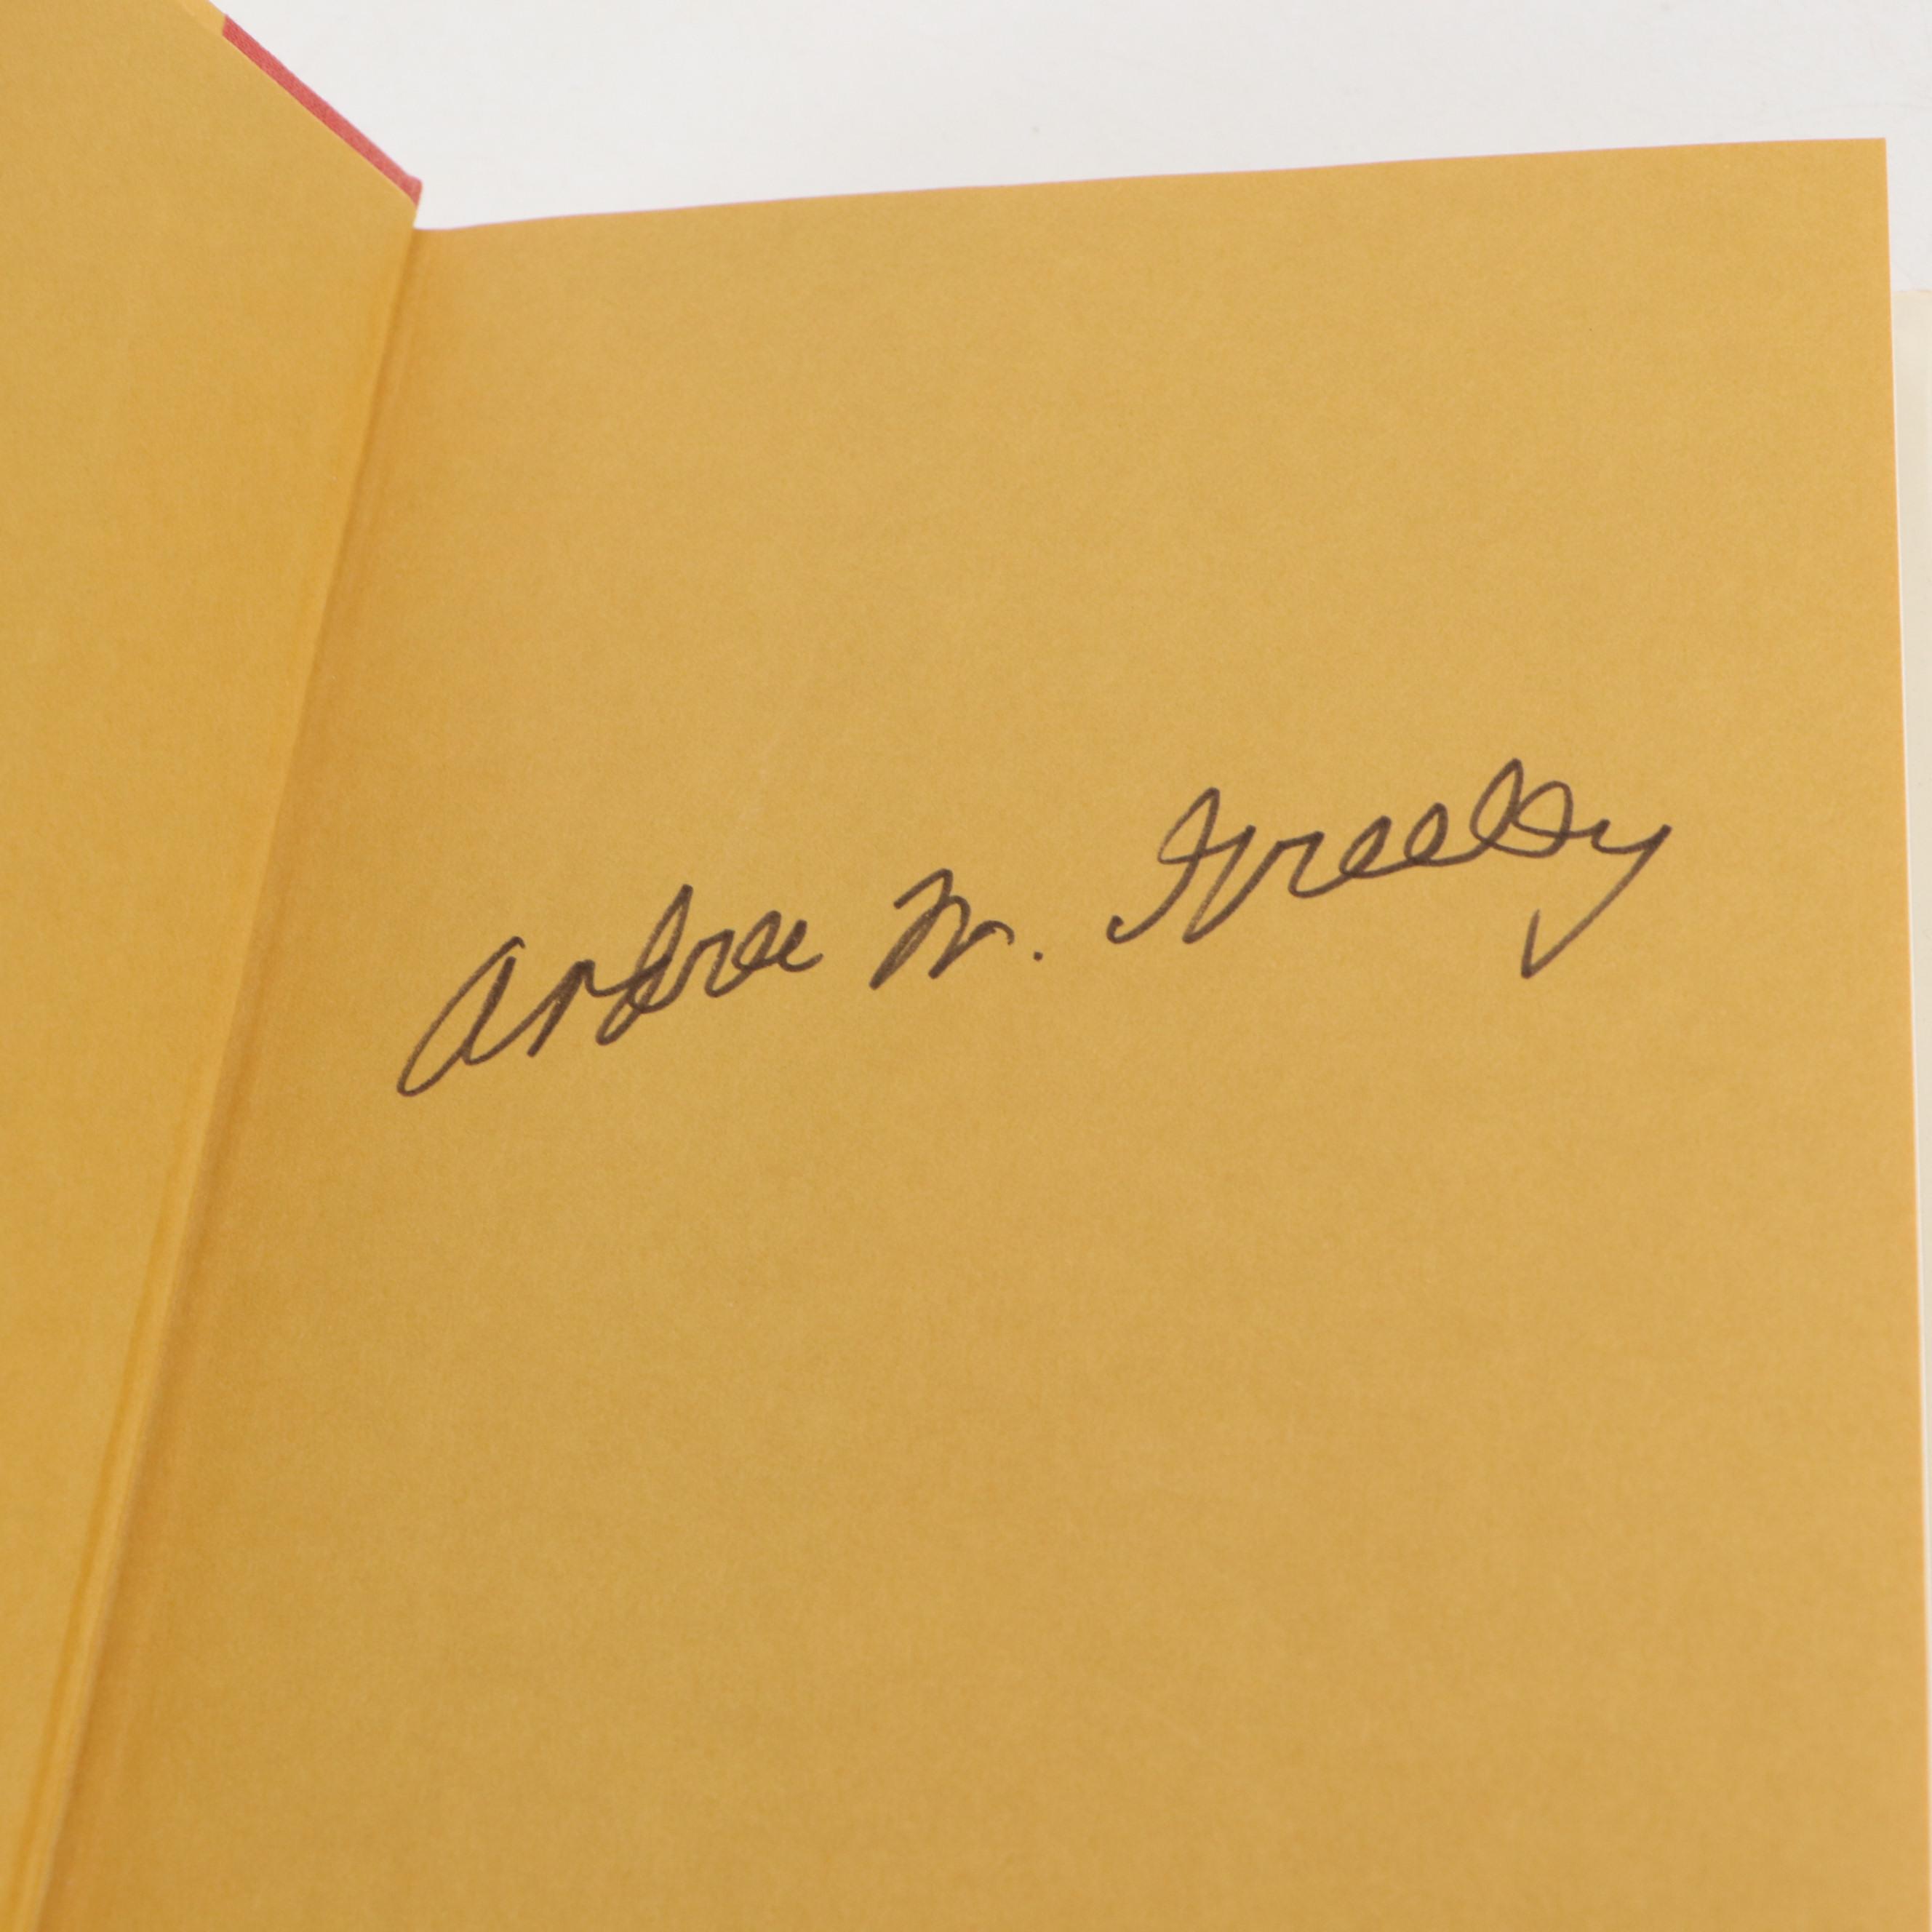 Andrew M. Greeley